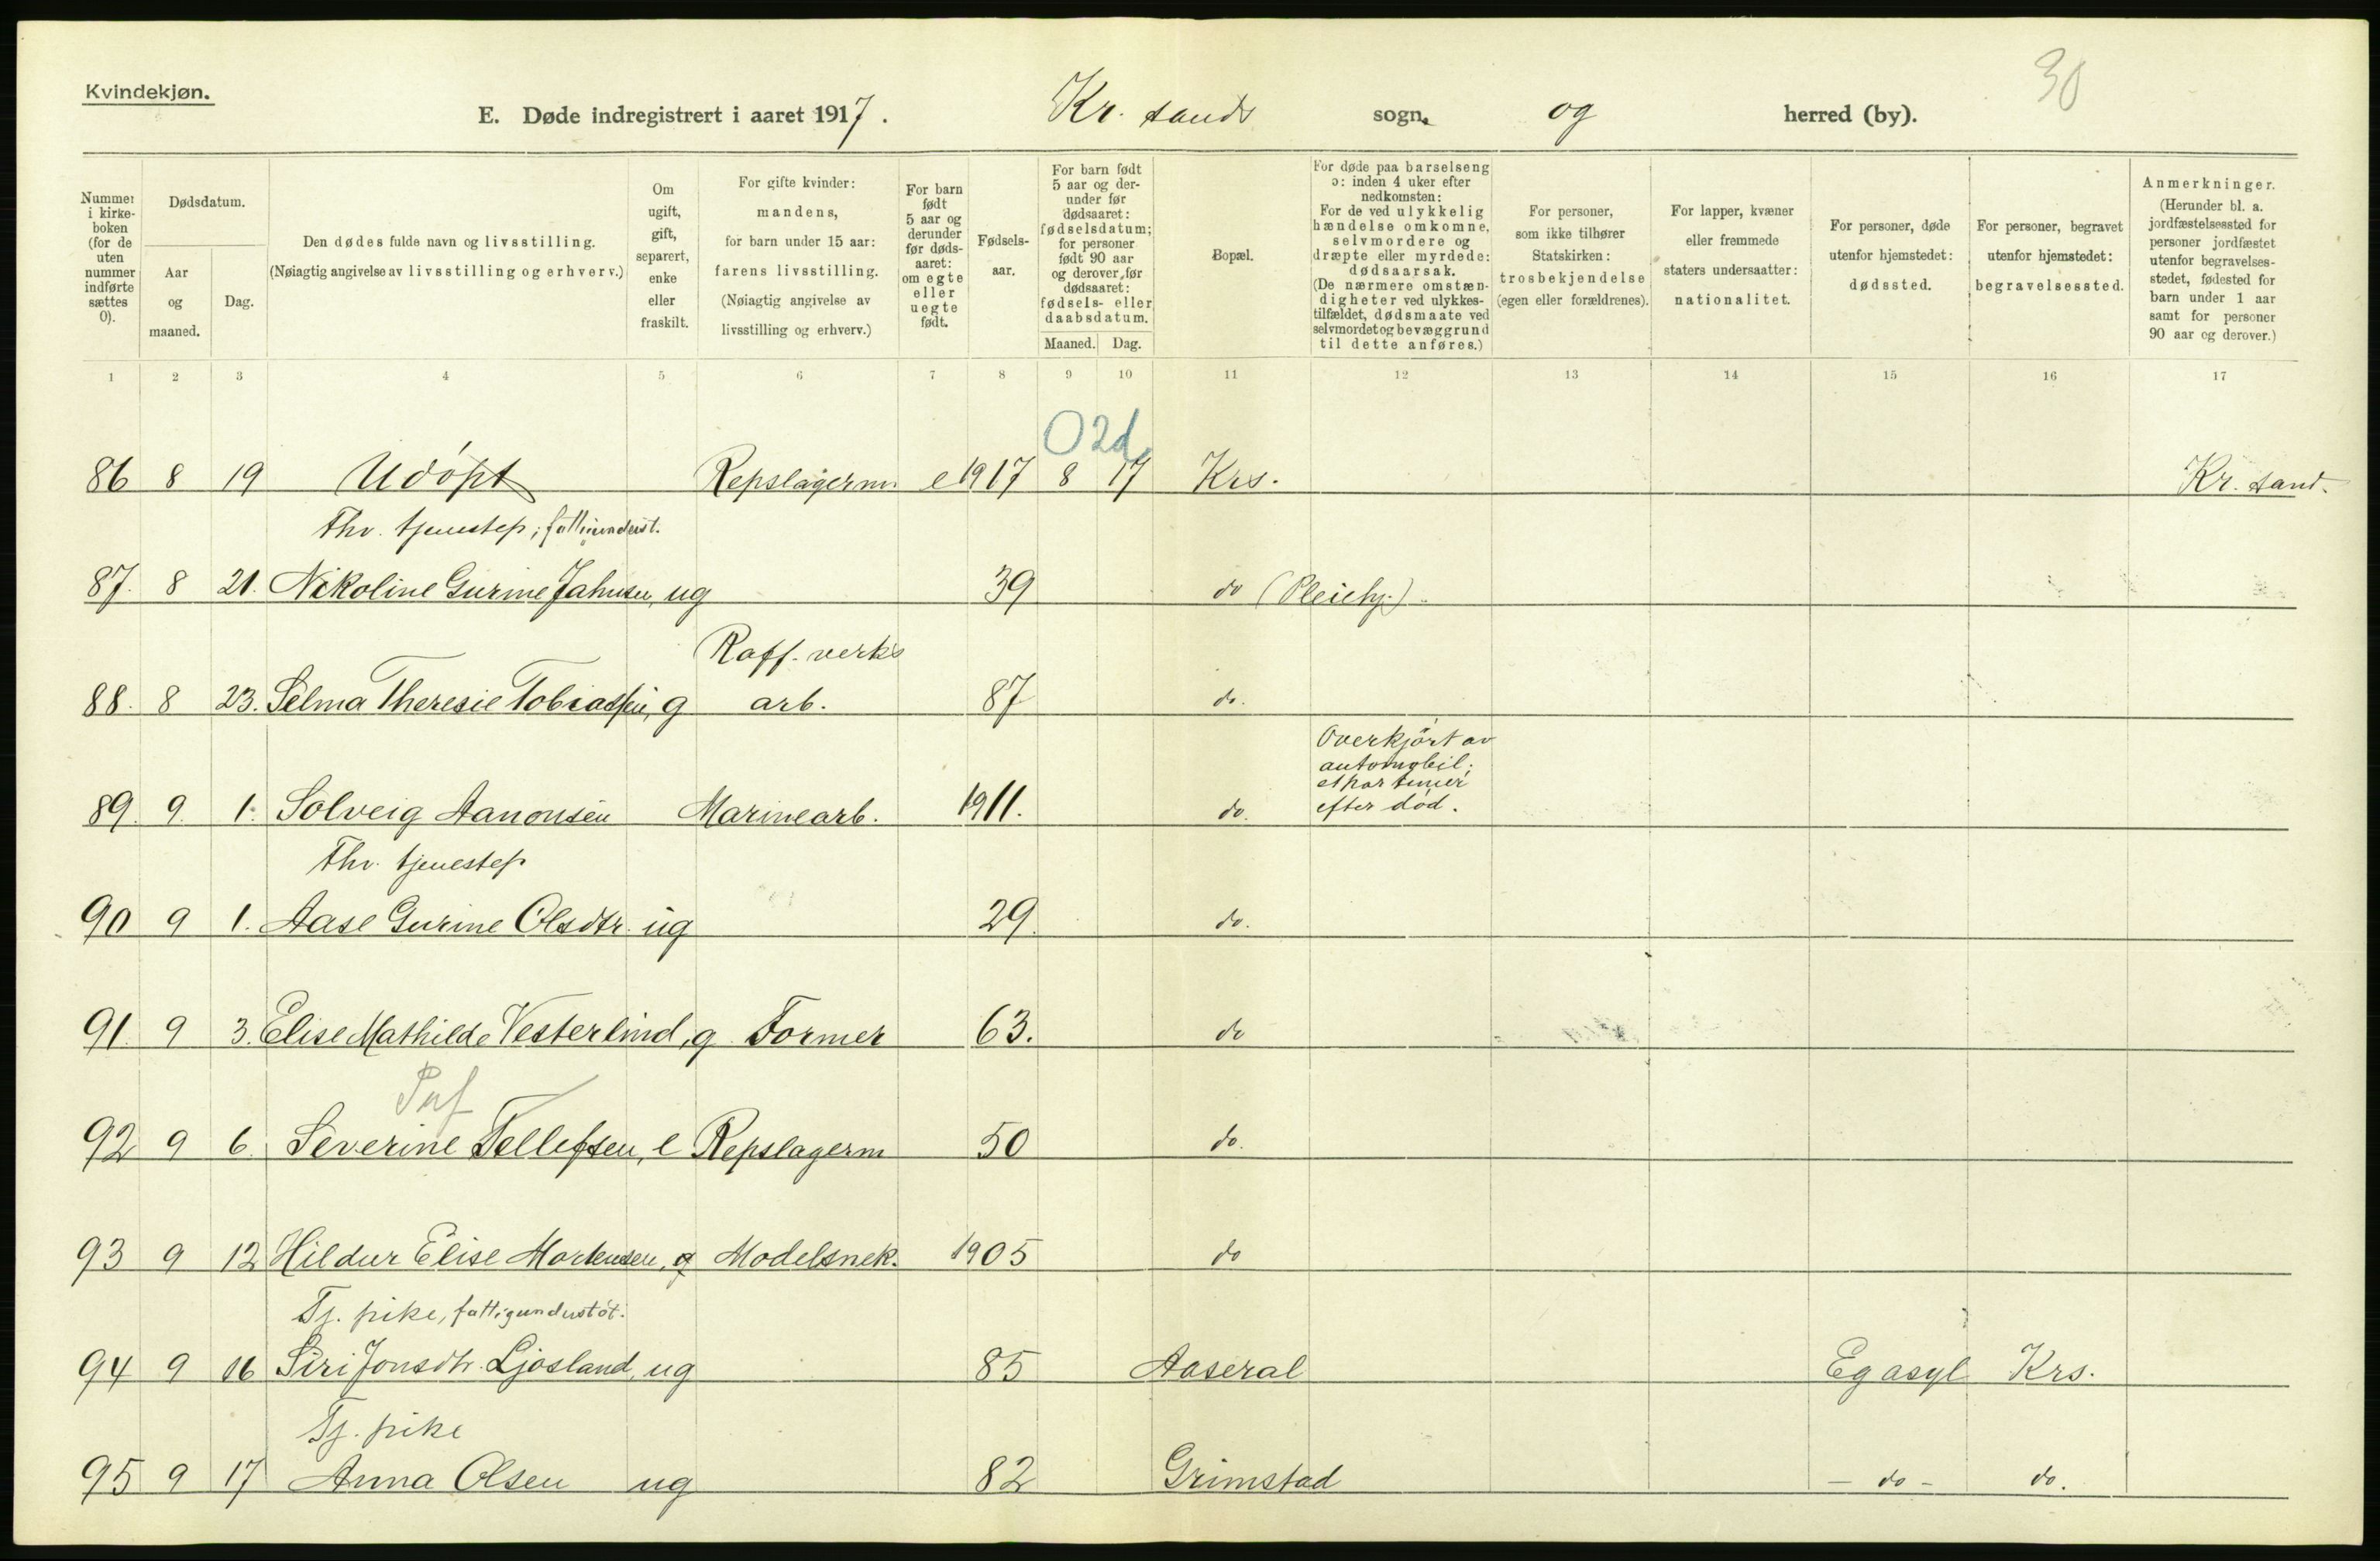 30
Kvindekjøn.
E. Døde indregistrert i aaret 1917. Kr. sands sogn. og herred (by).
Nummer i kirkeboken (for de uten nummer indførte sættes 0).
Dødsdatum.
Aar og maaned.
Dag.
Den dødes fulde navn og livsstilling.
(Nøiagtig angivelse av livsstilling og erhverv.)
Om ugift, gift, separert, enke eller fraskilt.
For gifte kvinder:
mandens,
for barn under 15 aar:
farens livsstilling.
(Nøiagtig angivelse av
livsstilling og erhverv.)
For barn født 5 aar og derunder før dødsaaret: om egte eller uegte født.
Fødselsaar.
For barn født 5 aar og derunder før dødsaaret: fødselsdatum; for personer født 90 aar og derover før dødsaaret: fødsels- eller daabsdatum.
Maaned. Dag.
Bopæl.
For døde paa barselseng
ɔ: inden 4 uker efter
nedkomsten:
For de ved ulykkelig
hændelse omkomne,
selvmordere og
dræpte eller myrdede:
dødsaarsak.
(De nærmere omstæn-
digheter ved ulykkes-
tilfældet, dødsmaate ved
selvmordet og bevæggrund
til dette anføres.)
For personer,
som ikke tilhører
Statskirken:
trosbekjendelse
(egen eller forældrenes).
For lapper, kvæner
eller fremmede
staters undersaatter:
nationalitet.
For personer, døde
utenfor hjemstedet:
dødssted.
For personer, begravet
utenfor hjemstedet:
begravelsessted.
Anmerkninger.
(Herunder bl. a.
jordfæstelsessted for
personer jordfæstet
utenfor begravelses-
stedet, fødested for
barn under 1 aar
samt for personer
90 aar og derover.)
1 2 3 4 5 6 7 8 9 10 11 12 13 14 15 16 17
O 2d
86 8 19 Udöpt Repslagerm. e 1917 8 17 Krs. Kr. sand.
Fhv. tjenestep; fattigunderst.
87. 8 21. Nikoline Gurine Jahnsen, ug 39 do (Pleiehj.)
Raff. verks
88. 8 23. Selma Theresie Tobiassen, g arb. 87 do.
Overkjört av
automobil;
et par timer
efter död.
89. 9. 1. Solveig Aanonsen Marinearb. 1911. do.
Fhv. tjenestep
90 9 1. Aase Gurine Olsdtr. ug 29. do.
91. 9 3. Elise Mathilde Vesterlind, g Former 63. do
92 9 6. Severine Tellefsen, e Repslagerm 50 do.
93 9 12 Hildur Elise Mortensen, g Modelsnek. 1905 do
Tj. pike, fattigunderstöt.
94 9 16 Siri Jonsdtr. Ljosland, ug 85 Aaseral Eg asyl Krs.
Tj. pike
95 9 17 Anna Olsen ug 82 Grimstad - do - do.